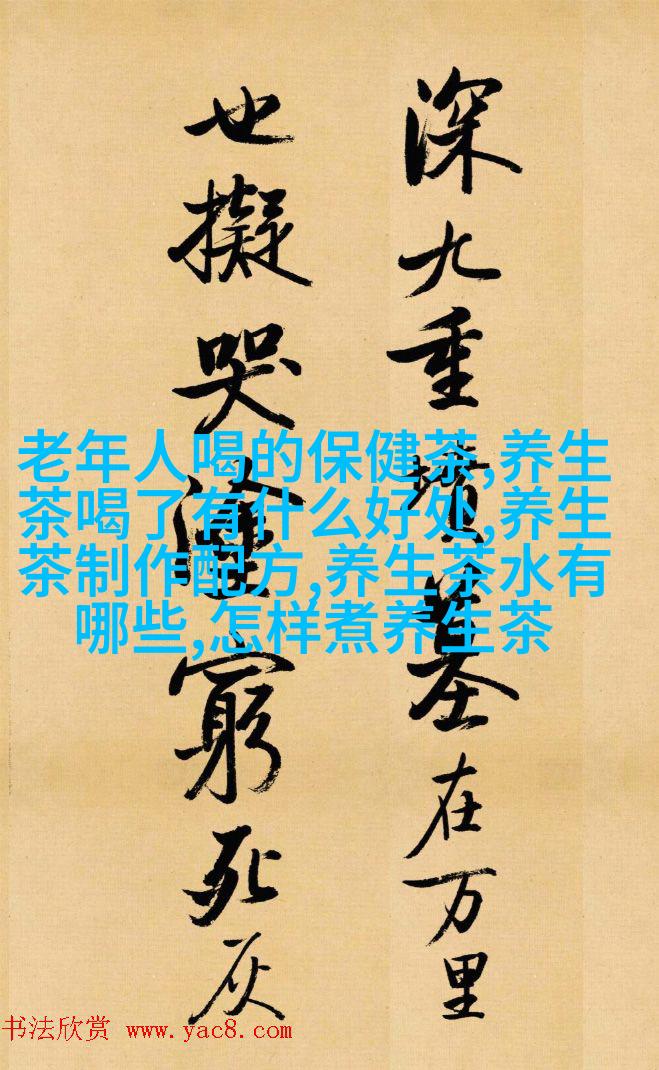 深九重墳墓在万里
也擬哭塗窮死灰
老年人喝的保健茶,养生
茶喝了有什么好处,养生
茶制作配方,养生茶水有
哪些,怎样煮养生茶
书法欣赏 www.yac8.com